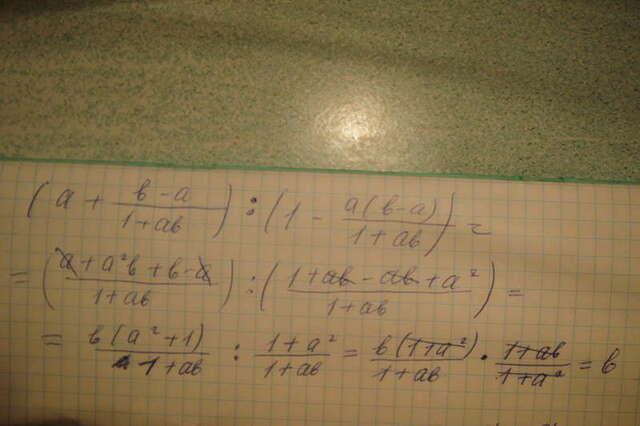 (a + (b-a)/(1+ab)) : (1 - a(b-a)/(1+ab)) =
= ((a+a²b+b-a)/(1+ab)) : ((1+ab-ab+a²)/(1+ab)) =
= b(a²+1)/(1+ab) : (1+a²)/(1+ab) = b(1+a²)/(1+ab) · (1+ab)/(1+a²) = b